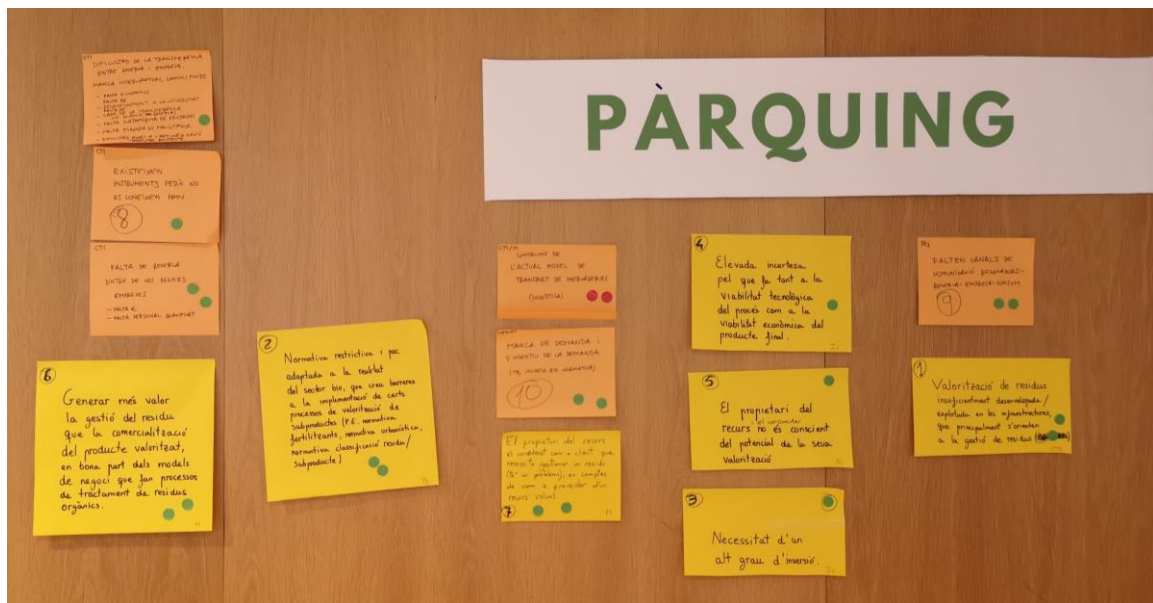 PÀRQUING
CT1
DIFICULTAT DE LA TRANSFERÈNCIA
ENTRE RECERCA I EMPRESA.
MANCA
- FALTA
- FALTA DE
- FALTA
- FALTA
CT1
EXISTEIXEN
INSTRUMENTS PERÒ NO
ES CONEIXEN PROU
8
CT1
FALTA DE RECERCA
DINTRE DE LES PRÒPIES
EMPRESES
- FALTA €
- FALTA PERSONAL QUALIFICAT
6
Generar més valor
la gestió del residu
que la comercialització
del producte valoritzat,
en bona part dels models
de negoci que fan processos
de tractament de residus
orgànics.
2
Normativa restrictiva i poc
adaptada a la realitat
del sector bio, que crea barreres
a la implementació de certs
processos de valorització de
subproductes (P.E. normativa
fertilitzants, normativa urbanística,
normativa classificació residu/
subproducte)
L'ACTUAL MODEL DE
TRANSPORT DE MERCADERIES
(LOGÍSTICA)
MANCA DE DEMANDA I
FOMENT DE LA DEMANDA
10
El propietari del recurs
es considerat com a client que
necessita gestionar un residu
("té" un problema), en comptes
de com a proveïdor d'un
recurs valuós.
7
4
Elevada incertesa
pel que fa tant a la
viabilitat tecnològica
del procés com a la
viabilitat econòmica del
producte final.
5
El propietari del
recurs no és conscient
del potencial de la seva
valorització
3
Necessitat d'un
alt grau d'inversió.
FALTEN CANALS DE
COMUNICACIÓ
RECERCA-EMPRESA-
9
1
Valorització de residus
insuficientment desenvolupada/
explotada en les infraestructures,
que principalment s'orienten
a la gestió de residus